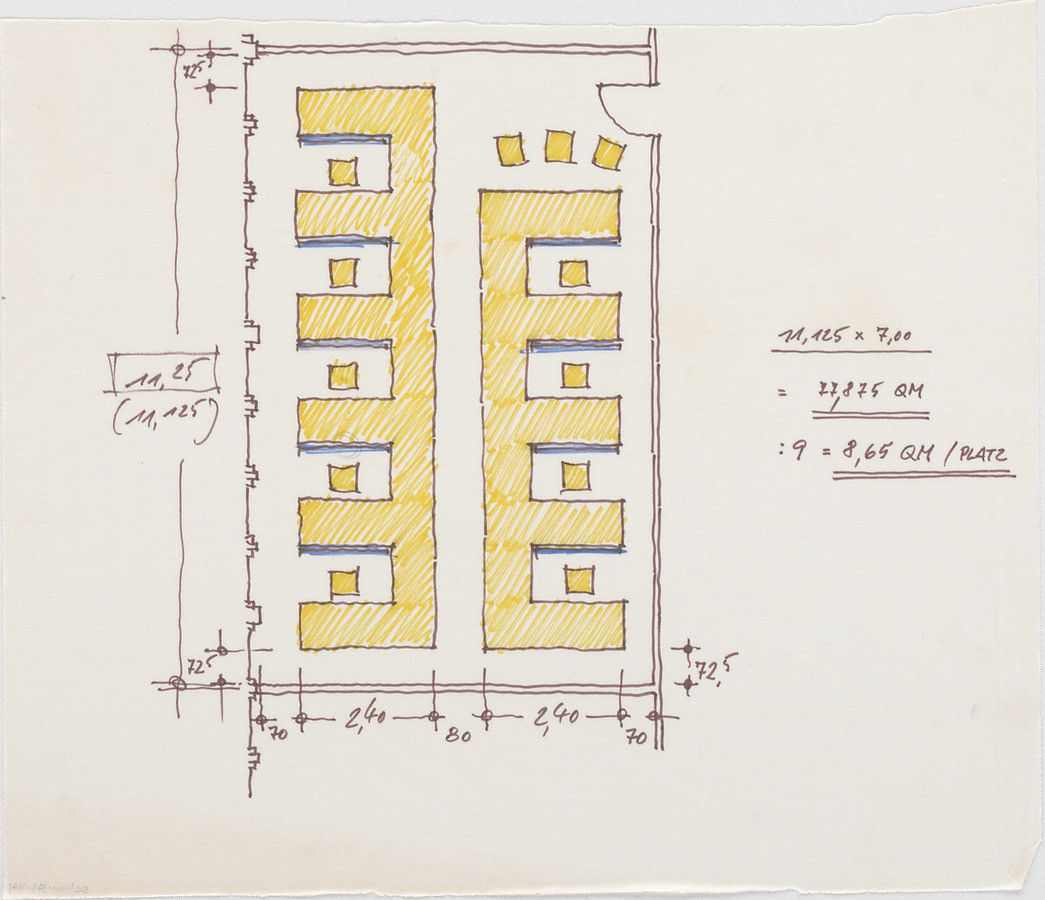 72⁵
11,25
(11,125)
72⁵
70
2,40
80
2,40
70
72,5
11,125 x 7,00
= 77,875 QM
: 9 = 8,65 QM / PLATZ